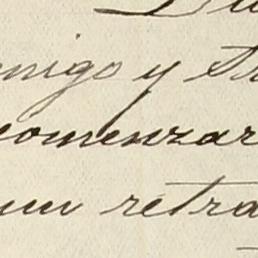 migo y
comenzar
un retra